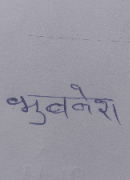 भुवनेश